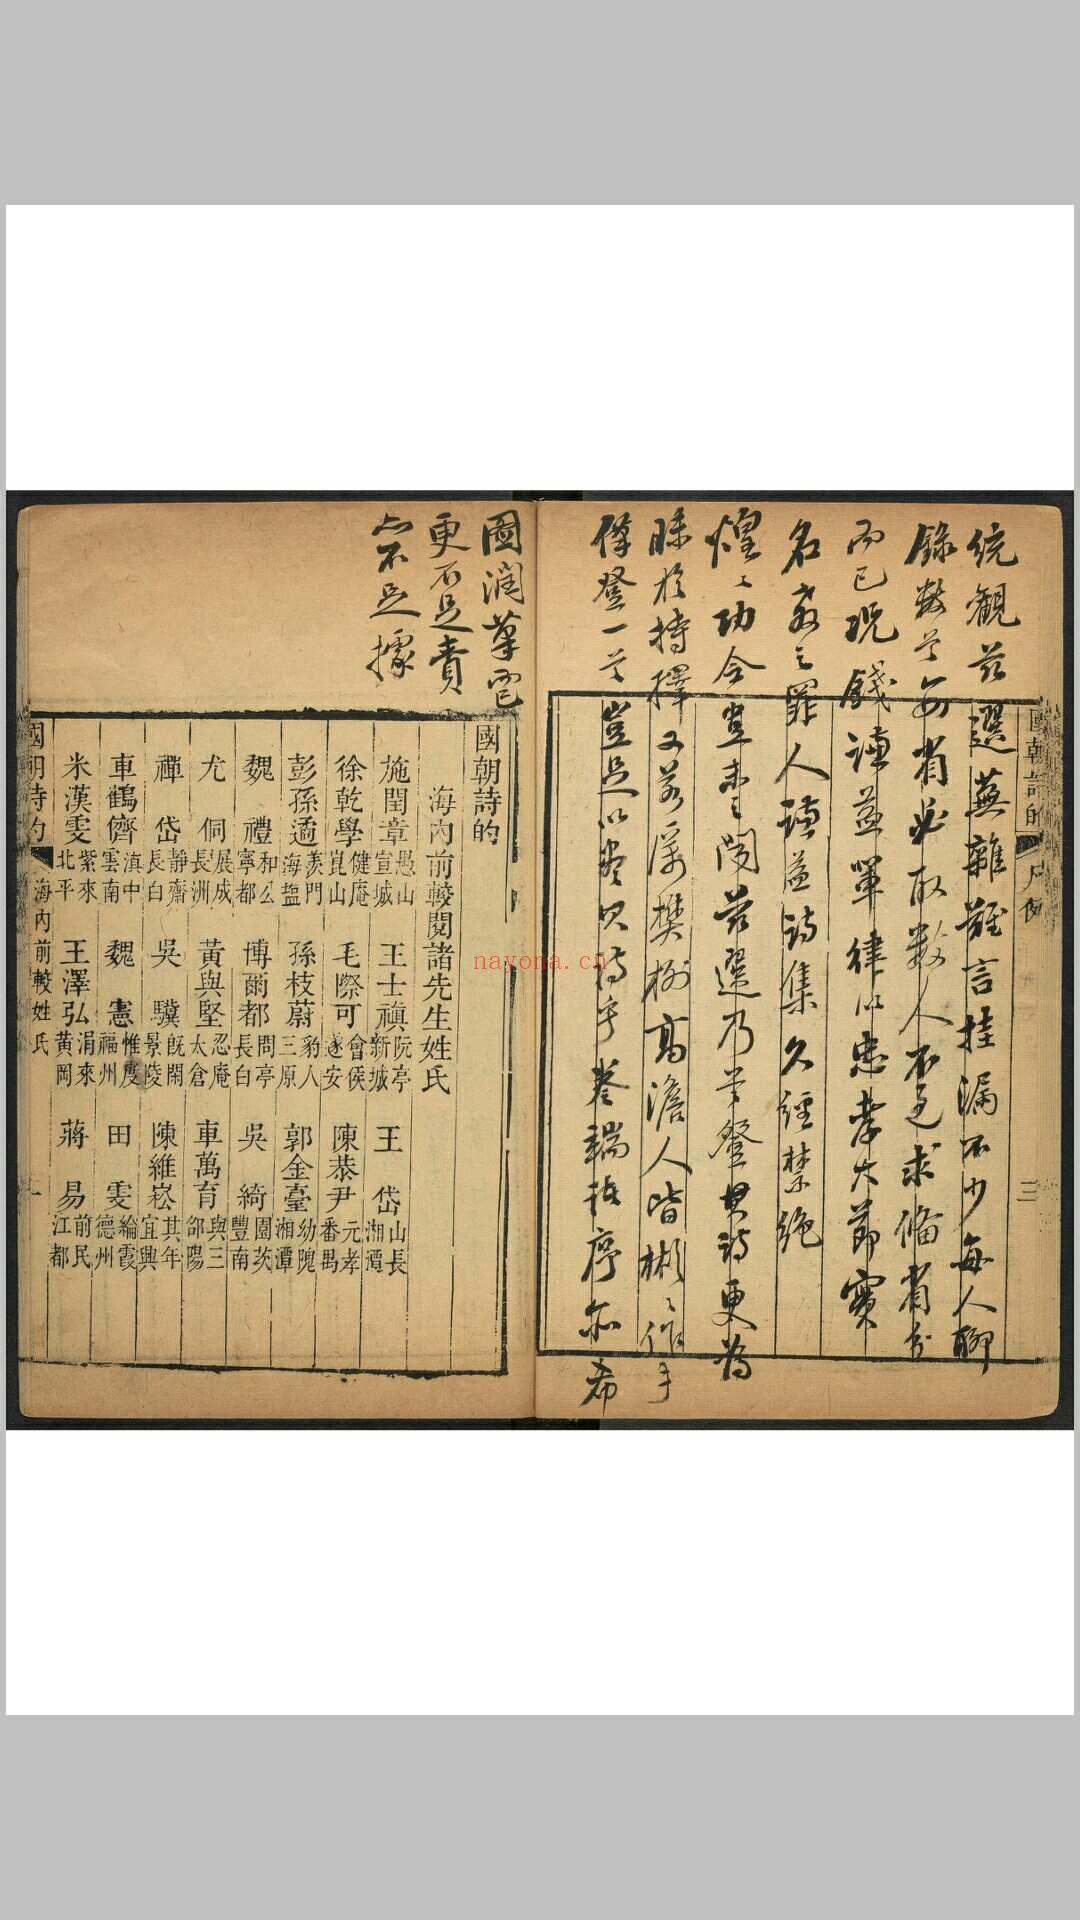 國朝詩的
凡例
三
統觀茲選蕪雜難言挂漏不少每人聊
錄數首每省必取數人不過求備省分
而已況錢謙益輩律以忠孝大節實
名教之罪人謙益詩集久經禁絕
煌煌功令豈未之聞茲選乃首登其詩更為
昧於持擇又若厲樊榭高澹人皆彬彬作手
僅登一首豈足以盡其詩乎卷端被序亦希
圖潤筆
更不足責
亦不足據
國朝詩的
海內前較閱諸先生姓氏
施閏章 愚山 宣城 王士禛 阮亭 新城 王岱 山長 湘潭
徐乾學 健庵 崑山 毛際可 會侯 遂安 陳恭尹 元孝 番禺
彭孫遹 羨門 海鹽 孫枝蔚 豹人 三原 郭金臺 幼隗 湘潭
魏禮 和公 寧都 博爾都 問亭 長白 吳綺 園茨 豐南
尤侗 展成 長洲 黃與堅 忍庵 太倉 車萬育 與三 邵陽
禪岱 靜齋 長白 吳驥 既閑 景陵 陳維崧 其年 宜興
車鶴儕 滇中 雲南 魏憲 惟度 福州 田雯 綸霞 德州
米漢雯 紫來 北平 王澤弘 涓來 黃岡 蔣易 前民 江都
國朝詩的
海內前較姓氏
一
nayona.cn